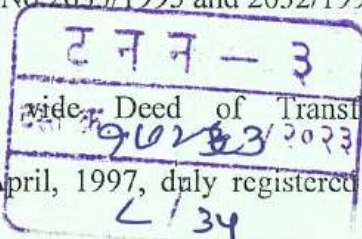 No.2033/1995 and 2032/199
ट न न - ३
vide Deed of Transf
/२०२३
April, 1997, duly registered
८ / ३५